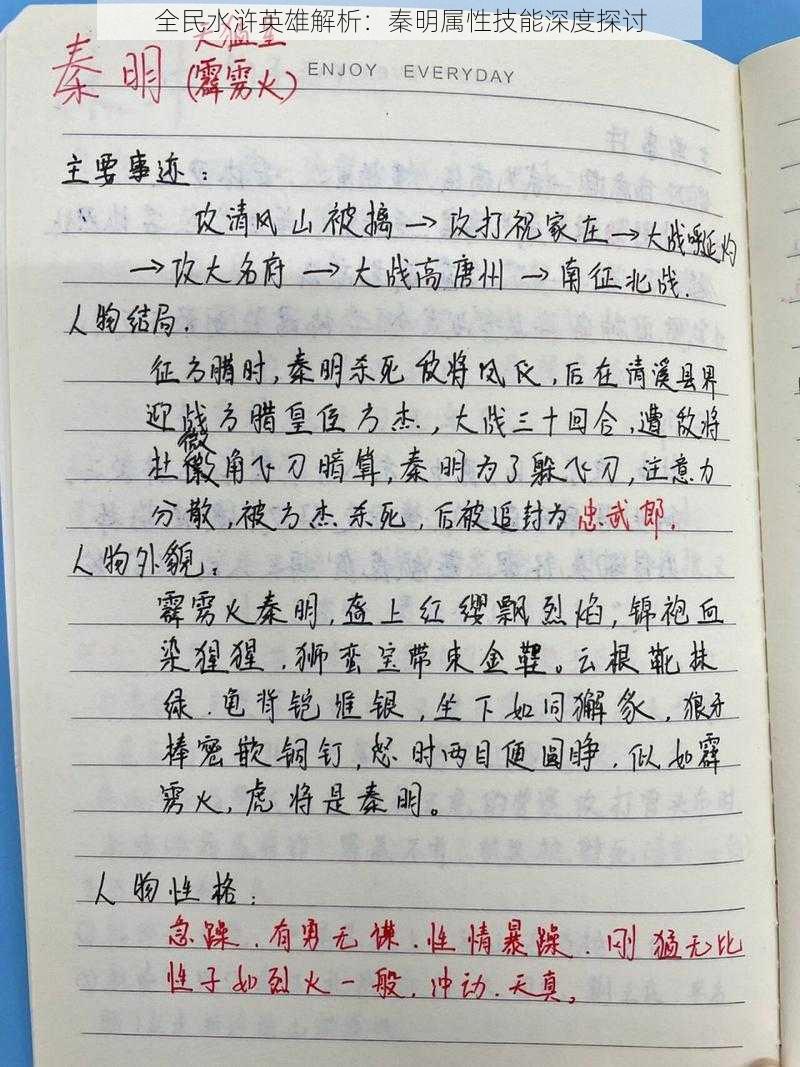 全民水浒英雄解析：秦明属性技能深度探讨
天猛星
秦明(霹雳火)
ENJOY EVERYDAY
主要事迹：
攻清风山被擒→攻打祝家庄→大战呼延灼
→攻大名府→大战高唐州→南征北战.
人物结局.
征方腊时,秦明杀死敌将凤氏,后在清溪县界
迎战方腊皇侄方杰,大战三十回合,遭敌将
杜微角飞刀暗算,秦明为了躲飞刀,注意力
分散,被方杰杀死,后被追封为忠武郎.
人物外貌：
霹雳火秦明,盔上红缨飘烈焰,锦袍血
染猩猩.狮蛮宝带束金鞓。云根靴抹
绿.龟背铠堆银,坐下如同獬豸,狼牙
棒密嵌铜钉,怒时两目便圆睁.似如霹
雳火,虎将是秦明。
人物性格：
急躁.有勇无谋.性情暴躁.刚猛无比
性子如烈火一般,冲动.天真。